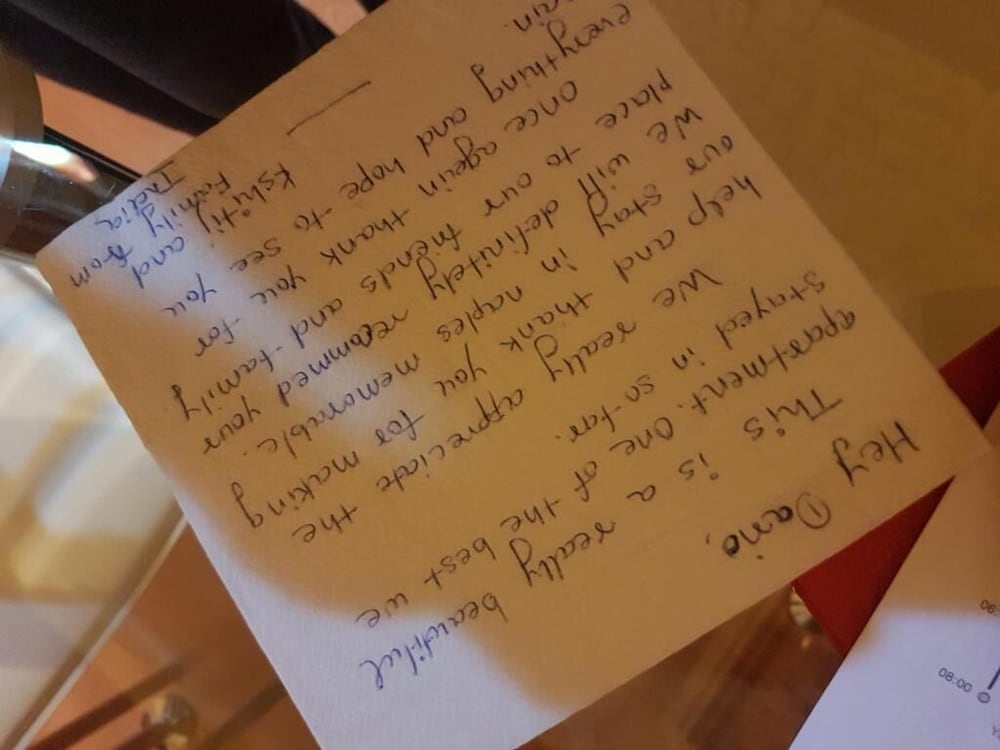 Hey Dario,
This is a really beautiful
apartment. One of the best we
stayed in so far.
We really appreciate the
help and thank you for making
our stay in naples memorable.
We will definitely recommed your
place to our friends and family
once again thank you for
everything and hope to see you
Kshitij and
Family from
India
08:00